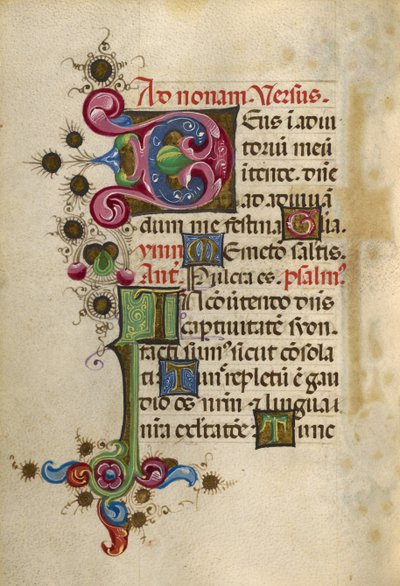 Ad nonam. Versus.
Deus ī adiu
toriū meū
ītende. dn̄e
ad adiuuā
dum me festina. Gl̄ia
ymn̄ Memēto salt̄is.
Ant̄. Pulcra es. psalmꝰ
IN cōuertendo dn̄s
captiuitatē syon.
facti sumꝰ sicut cōsola
ti. Tūc repletū ē gau
dio os nr̄m & lingua
nr̄a exultatōe. Tunc